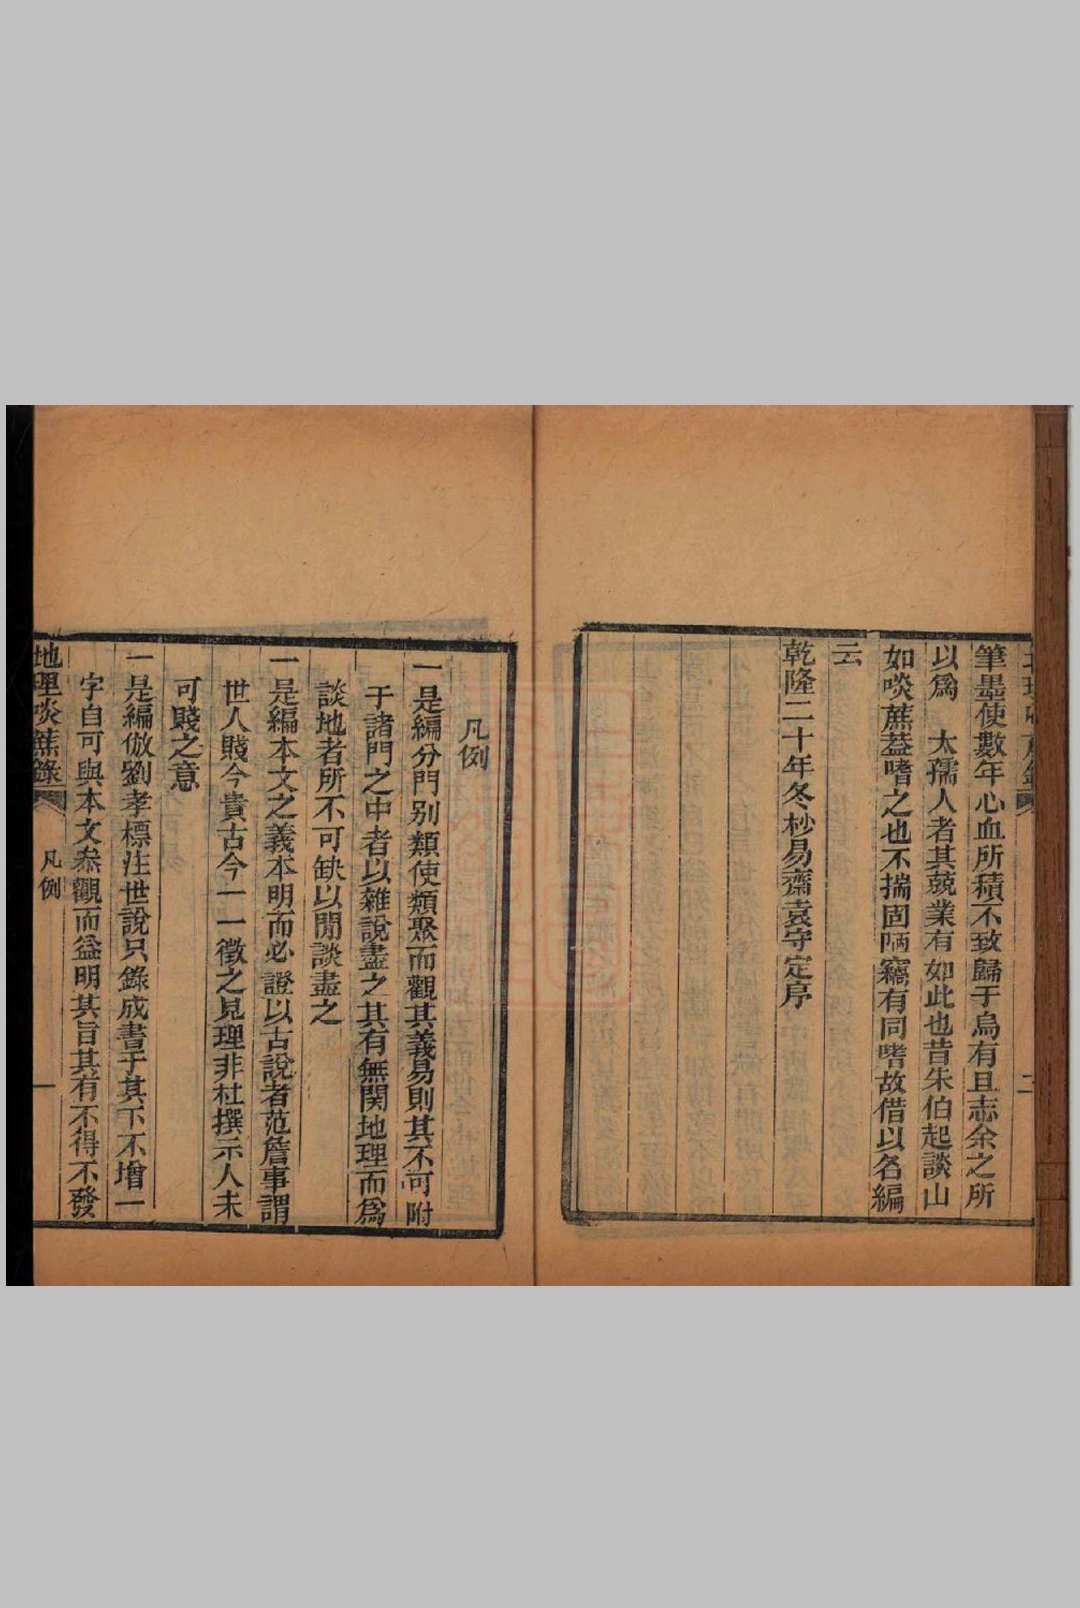 筆墨使數年心血所積不致歸于烏有且志余之所
以爲　太孺人者其兢業有如此也昔朱伯起談山
如啖蔗蓋嗜之也不揣固陋竊有同嗜故借以名編
云
乾隆二十年冬杪易齋袁守定序
二
凡例
一是編分門別類使類聚而觀其義易則其不可附
于諸門之中者以雜說盡之其有無関地理而爲
談地者所不可缺以閒談盡之
一是編本文之義本明而必證以古說者范詹事謂
世人賤今貴古今一一徵之見理非杜撰示人未
可賤之意
一是編倣劉孝標注世說只錄成書于其下不增一
字自可與本文叅觀而益明其旨其有不得不發
地理啖蔗錄
凡例
一